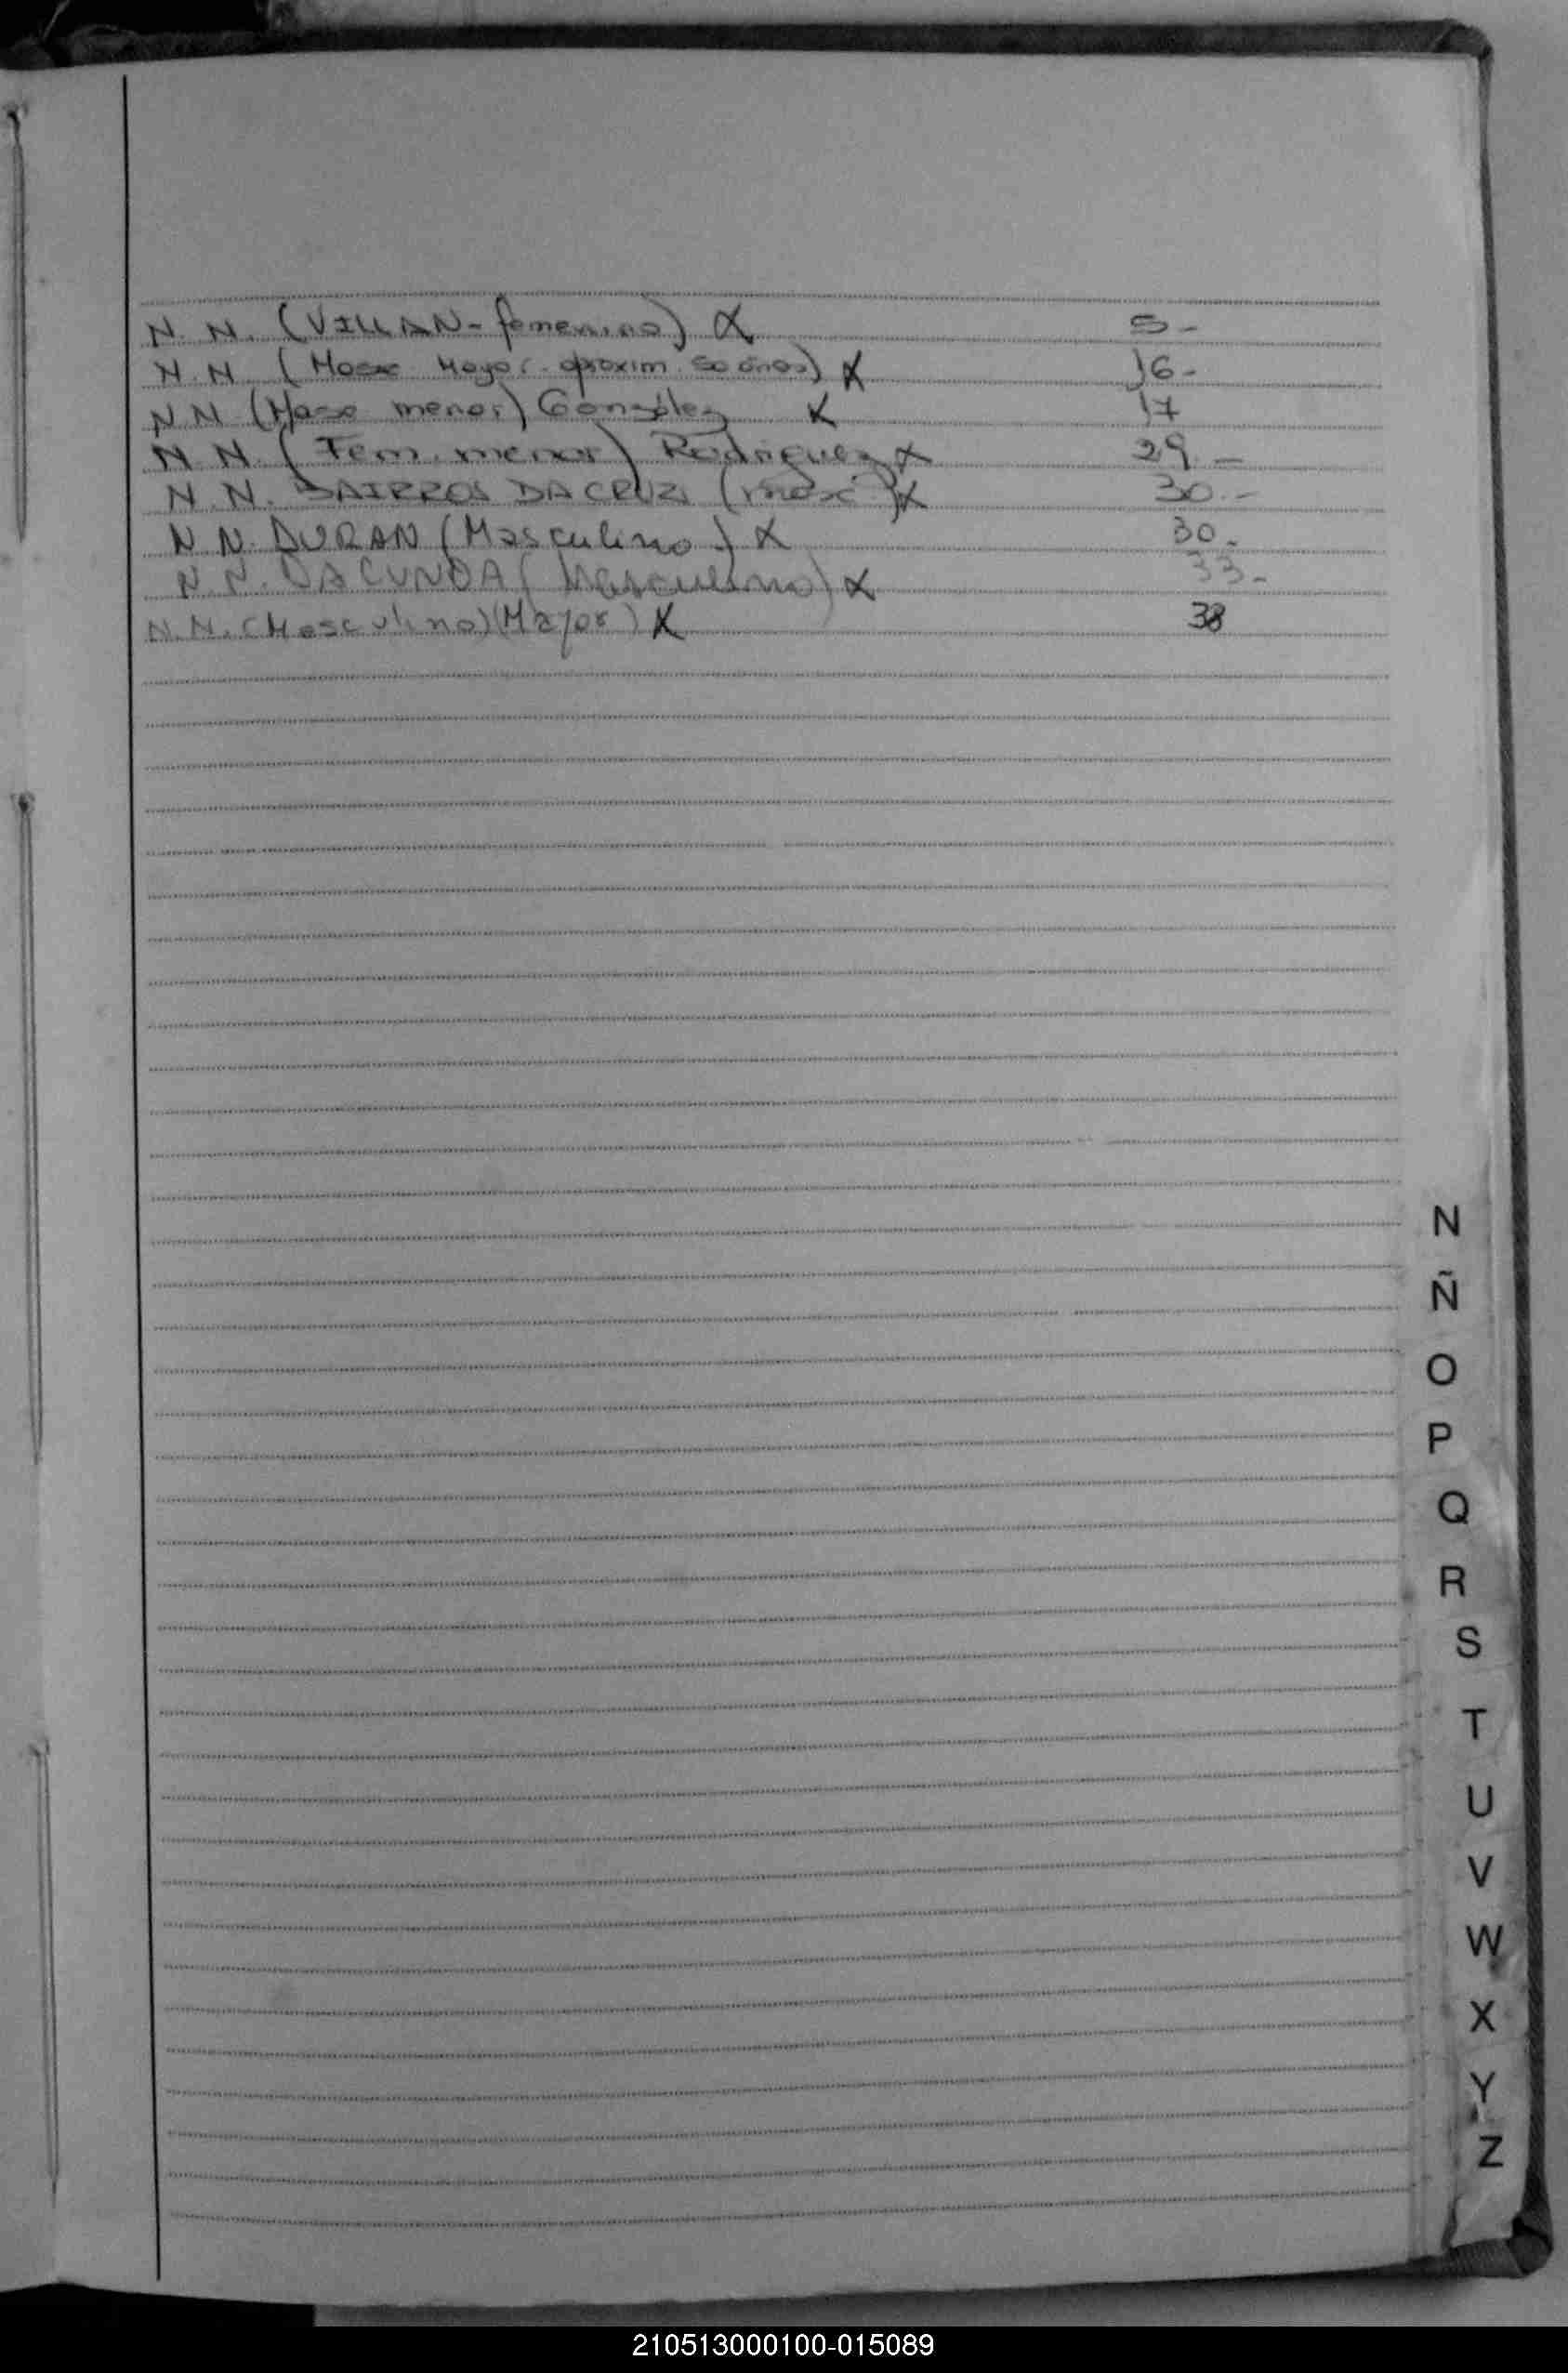 N. N. (VILLAN - femenino) X 5-
N. N. (Masc Mayor. aproxim. 50 años) X 16-
N N. (Masc menor) González X 17
N. N. (Fem. menor) Rodriguez X 29. -
N. N. BAIRROS DA CRUZ (masc.) X 30.-
N. N. DURAN (Masculino) X 30.
N. N. DA CUNDA (Masculino) X 33.-
N. N. (Masculino) (Mayor) X 38
N
Ñ
O
P
Q
R
S
T
U
V
W
X
Y
Z
210513000100-015089